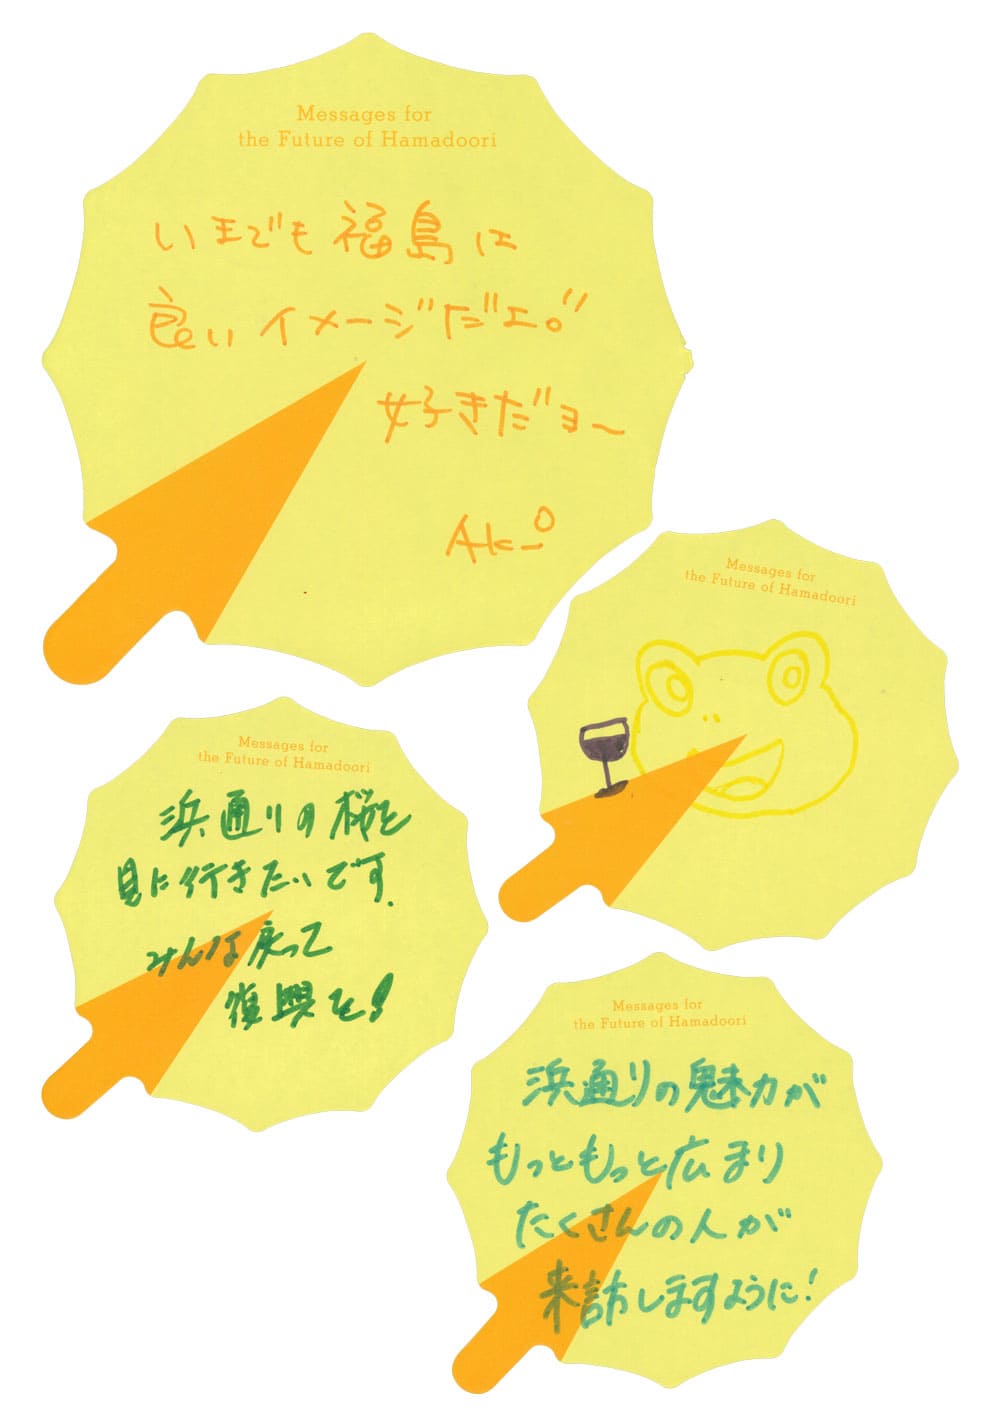 Messages for
the Future of Hamadoori
いまでも福島に
良いイメージだエ。"
好きだョ〜
Aki
Messages for
the Future of Hamadoori
Messages for
the Future of Hamadoori
浜通りの桜を
見に行きたいです.
みんな戻って
復興を!
Messages for
the Future of Hamadoori
浜通りの魅力が
もっともっと広まり
たくさんの人が
来訪しますように!